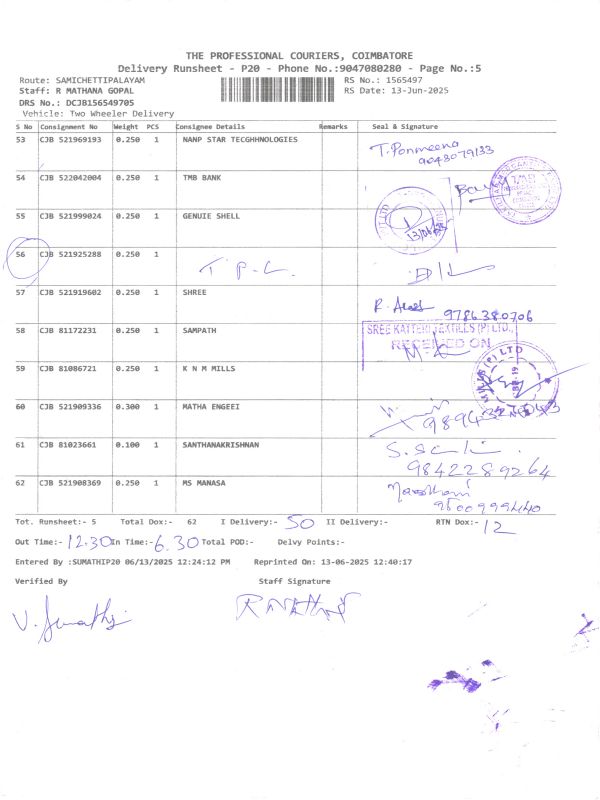 THE PROFESSIONAL COURIERS, COIMBATORE
Delivery Runsheet - P20 - Phone No.:9047080280 - Page No.:5
Route: SAMICHETTIPALAYAM RS No.: 1565497
Staff: R MATHANA GOPAL RS Date: 13-Jun-2025
DRS No.: DCJB156549705
Vehicle: Two Wheeler Delivery
S No Consignment No Weight PCS Consignee Details Remarks Seal & Signature
53 CJB 521969193 0.250 1 NANP STAR TECGHHNOLOGIES
T. Ponmeena
9048079133
54 CJB 522042004 0.250 1 TMB BANK
55 CJB 521999024 0.250 1 GENUIE SHELL
13/06/25
56 CJB 521925288 0.250 1
T P C
57 CJB 521919602 0.250 1 SHREE
9786380706
58 CJB 81172231 0.250 1 SAMPATH
SREE KATTERI TEXTILLS (P) LTD.,
RECEIVED ON
59 CJB 81086721 0.250 1 K N M MILLS
MILLS (P) LTD
60 CJB 521909336 0.300 1 MATHA ENGEEI
61 CJB 81023661 0.100 1 SANTHANAKRISHNAN
9842289264
62 CJB 521908369 0.250 1 MS MANASA
9500999440
Tot. Runsheet:- 5 Total Dox:- 62 I Delivery:- 50 II Delivery:- RTN Dox:- 12
Out Time:- 12.30 In Time:- 6.30 Total POD:- Delvy Points:-
Entered By :SUMATHIP20 06/13/2025 12:24:12 PM Reprinted On: 13-06-2025 12:40:17
Verified By Staff Signature
V. Sumathi